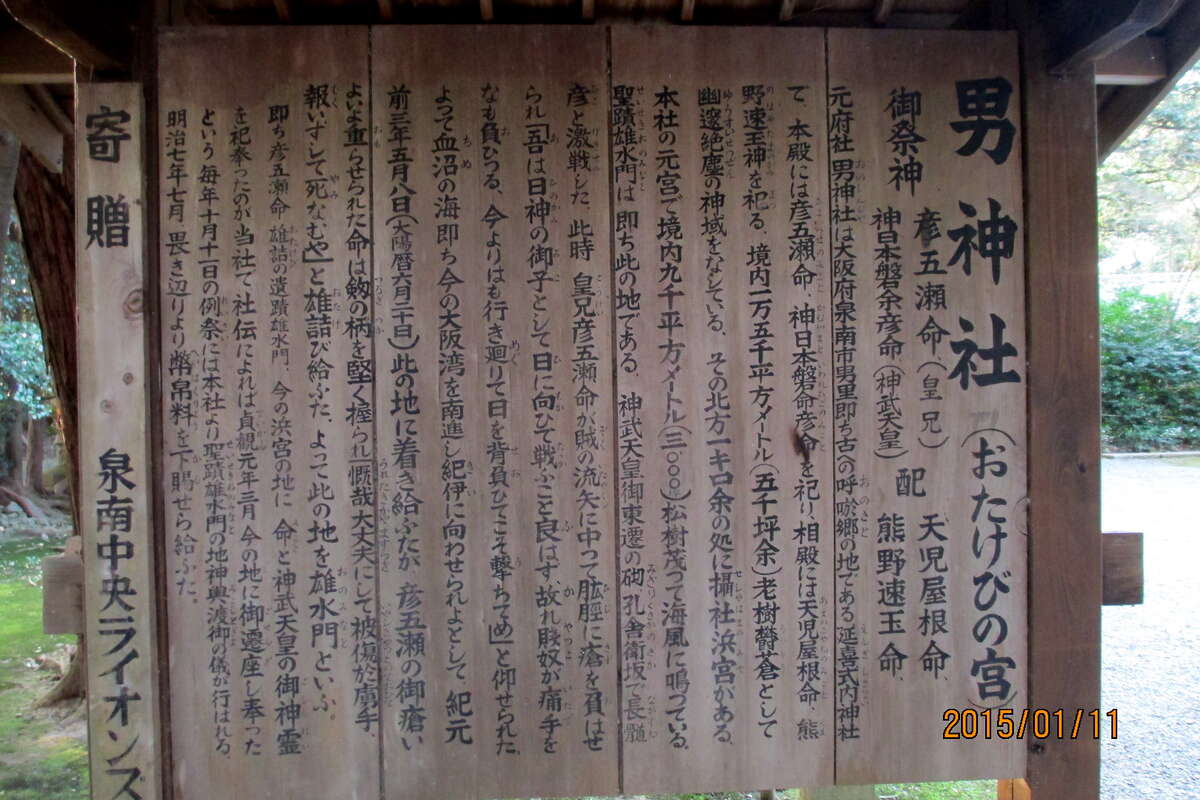 男神社（おたけびの宮）
御祭神
彦五瀬命（皇兄）
神日本磐余彦命（神武天皇）
配
天児屋根命、
熊野速玉命、
元府社 男神社は大阪府泉南市男里即ち古への呼唹郷の地である 延喜式内神社
で、本殿には彦五瀬命、神日本磐余彦命を祀り 相殿には天児屋根命、熊
野速玉神を祀る、境内一万五千平方メートル（五千坪余）老樹欝蒼として
幽邃絶塵の神域をなしている、その北方一キロ余の処に攝社浜宮がある、
本社の元宮で境内九千平方メートル（三〇〇〇）松樹茂つて海風に鳴つている、
聖蹟雄水門は 即ち此の地である、 神武天皇御東遷の砌 孔舎衛坂で長髄
彦と激戦した、此時 皇兄彦五瀬命が賊の流矢に中つて肱脛に瘡を負はせ
られ「吾は日神の御子として日に向ひて戦ふこと良はず、故れ賤奴が痛手を
なも負ひつる、今よりはも行き廻りて日を背負ひてこそ撃ちてめ」と仰せられた、
よって血沼の海即ち今の大阪湾を南進し紀伊に向わせられよとして、紀元
前三年五月八日（太陽暦六月二十日）此の地に着き給ふたが、彦五瀬の御瘡い
よいよ重らせられた命は剱の柄を堅く握られ「慨哉大丈夫にして被傷於虜手、
報いずして死なむや」と雄詰び給ふた、よって此の地を雄水門といふ。
即ち彦五瀬命 雄詰の遺蹟雄水門、今の浜宮の地に 命と神武天皇の御神霊
を祀奉ったのが当社で 社伝によれば貞観元年三月 今の地に御遷座し奉った
という 毎年十月十一日の例祭には本社より聖蹟雄水門の地神輿渡御の儀が行はれる、
明治七年七月 畏き辺りより 幣帛料を下賜せら給ふた。
寄贈 泉南中央ライオンズ
2015/01/11